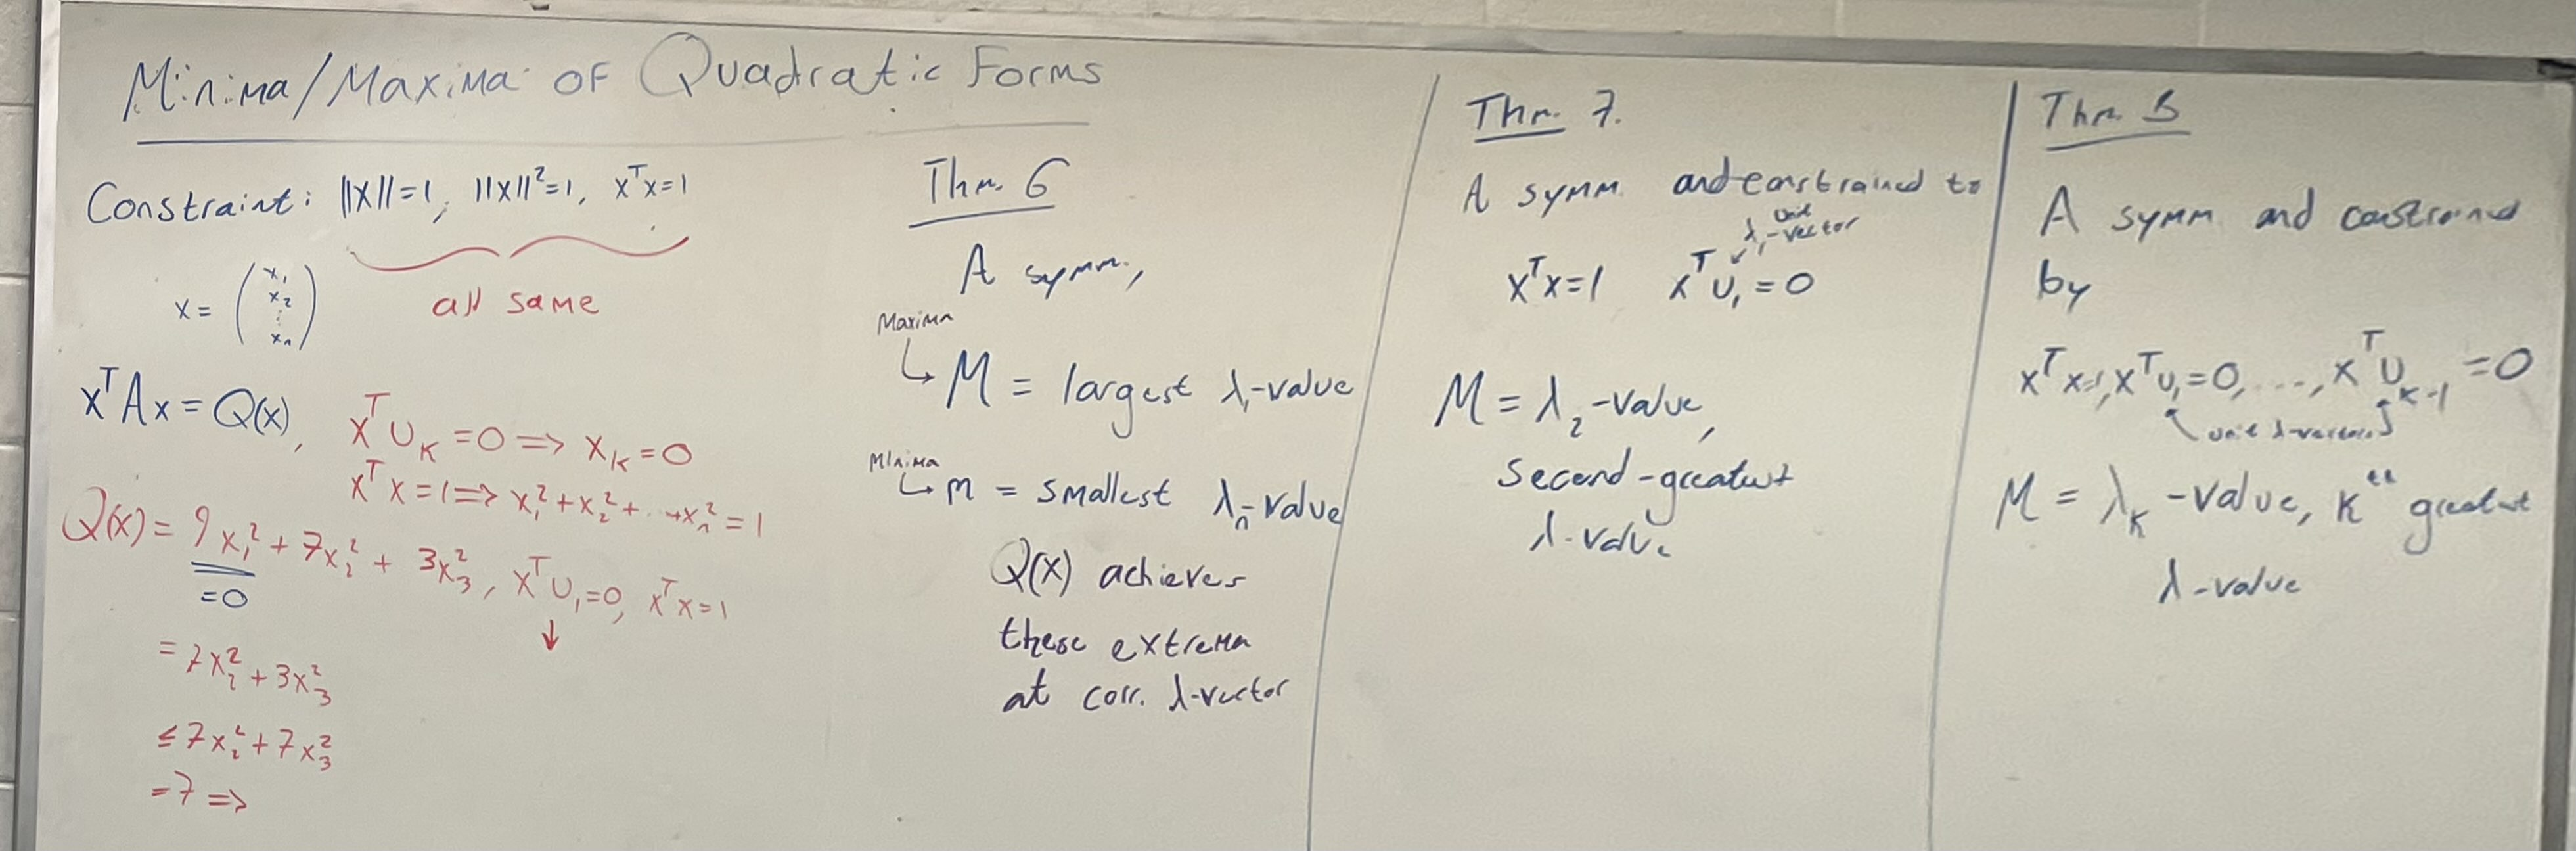 Minima/Maxima of Quadratic Forms
Constraint: ||x||=1, ||x||²=1, xᵀx=1
all same
x = (x₁ x₂ ⋮ xₙ)
xᵀAx = Q(x), xᵀu_K = 0 => x_K = 0
xᵀx = 1 => x₁² + x₂² + ... + xₙ² = 1
Q(x) = 9x₁² + 7x₂² + 3x₃², xᵀu₁=0, xᵀx=1
=0 ↓
= 7x₂² + 3x₃²
≤ 7x₂² + 7x₃²
= 7 =>
Thm. 6
A symm.,
Maxima
↳ M = largest λ₁-value
Minima
↳ m = smallest λₙ-value
Q(x) achieves
these extrema
at corr. λ-vector
Thm. 7.
A symm. and constrained to
unit
λ₁-vector
xᵀx=1 xᵀu₁ = 0
M = λ₂-value,
second-greatest
λ-value
Thm. 8
A symm and constrained
by
xᵀx=1, xᵀu₁=0, ..., xᵀu_{K-1} = 0
unit λ-vectors
M = λ_K-value, Kᵗʰ greatest
λ-value